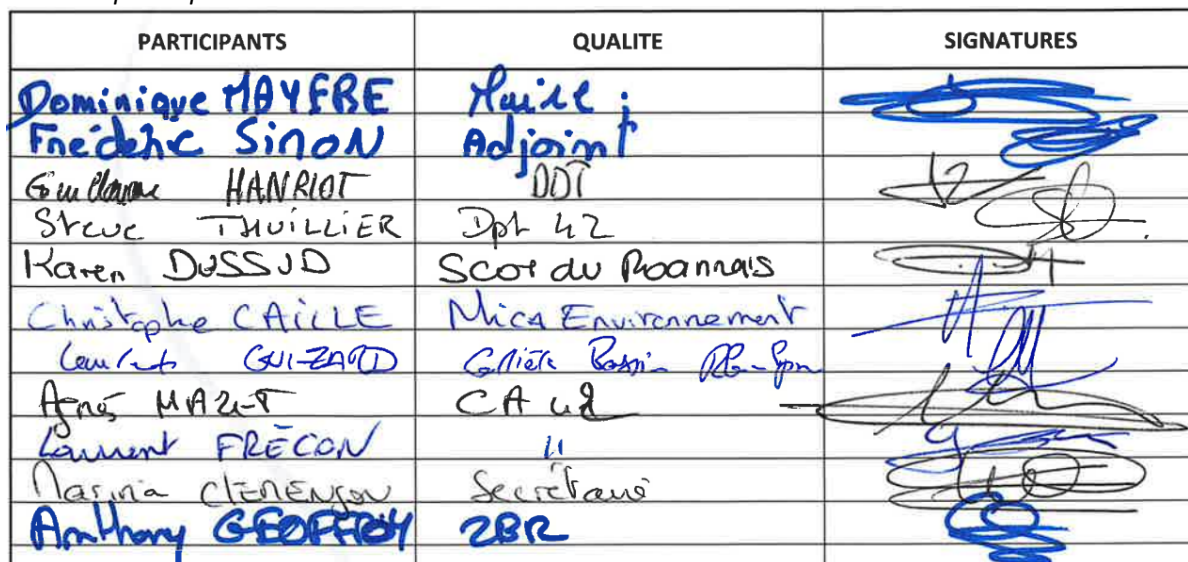 PARTICIPANTS QUALITE SIGNATURES
Dominique MAYFRE Maire.
Frédéric SIMON Adjoint
Guillaume HANRIOT DDT
Steve THUILLIER Dpt 42
Karen DUSSUD SCOT du Roannais
Christophe CAILLE Mica Environnement
GUIZARD
Agnès MAZET CA 42
Laurent FRÉCON 11
Marina CLEMENÇON Secrétaire
Anthony GEOFFROY 2BR